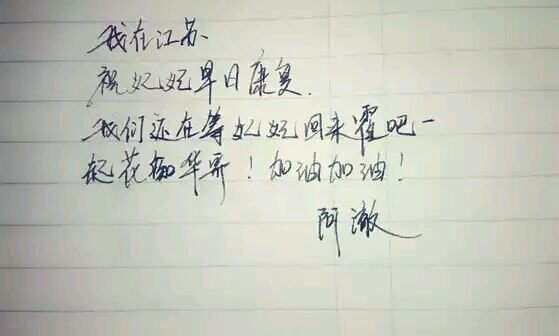 我在江苏
祝妃妃早日康复.
我们还在等妃妃回来霍吧一
起花痴华哥！加油加油！
阿澈